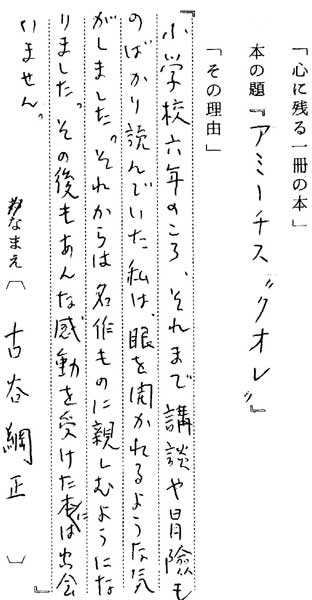 「心に残る一冊の本」
本の題『アミーチス〝クオレ〟』
「その理由」
『小学校六年のころ、それまで講談や冒険も
のばかり読んでいた私は、眼を開かれるような気
がしました。それからは名作ものに親しむようにな
りました。その後もあんな感動を受けた本には出会
いません。』
おなまえ〔 古谷綱正 〕